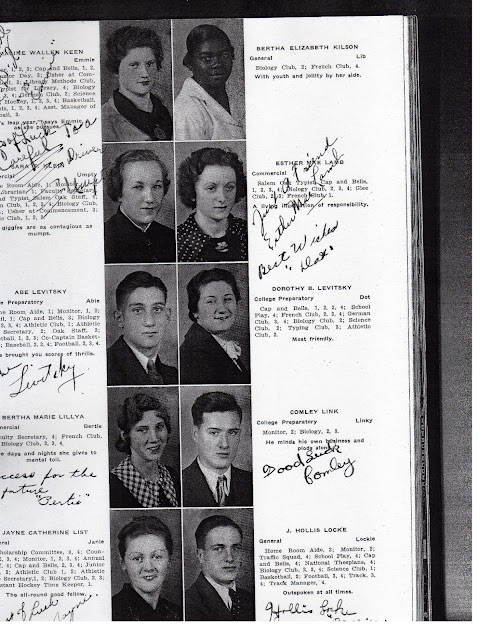 MAXINE WALLEN KEEN
Emmie
2, 3; Cap and Bells, 1, 2,
Day, 3; Usher at Com-
Library Methods Club,
Typist for Library, 4; Biology
German Club, 2; Science
Hockey, 1, 2, 3, 4; Basketball,
1, 2, 3, 4; Asst. Manager of
ball, 3.
leap year," says Emmie,
as she pursues.
of luck to a
careful
driver
Umpty
me Room Aide, 1;
Librarian
nd Typist, Salem Oak Staff, 4,
1, 2, 3, 4; Biology Club,
; Usher at Commencement, 3;
ic Club, 1, 2,
giggles are as contagious as
mumps.
ABE LEVITSKY
College Preparatory Abie
me Room Aide, 1; Monitor, 1, 2;
cil; Cap and Bells, 3; Biology
3, 3, 4; Athletic Club, 1; Athletic
Secretary, 2; Oak Staff, 3;
etball, 1, 2, 3; Co-Captain Basket-
Baseball, 2, 3, 4; Football, 2, 3, 4.
brought you scores of thrills.
Levitsky
BERTHA MARIE LILLYA
mercial Bertie
culty Secretary, 4; French Club,
Biology, 2, 3, 4.
e days and nights she gives to
mental toil.
success for the
future
"Bertie"
JAYNE CATHERINE LIST
eral Janie
holarship Committee, 3, 4; Coun-
2, 4; Monitor, 1, 2, 3, 4; Annual
4; Cap and Bells, 2, 3, 4; Junior
3; Athletic Club, 1, 2; Athletic
Secretary, 1, 2; Biology Club, 2, 3;
stant Hockey Time Keeper, 1.
The all-round good fellow.
of luck
Jayne
BERTHA ELIZABETH KILSON
General Lib
Biology Club, 2; French Club, 4.
With youth and jollity by her side.
ESTHER MAE LAMB
Commercial
Salem Oak Typist; Cap and Bells,
1, 2, 3, 4; Biology Club, 2, 3, 4; Glee
Club, 2, 3; French Club, 1.
A living of responsibility.
Esther Mae Lamb
Best Wishes
"Dot"
DOROTHY B. LEVITSKY
College Preparatory Dot
Cap and Bells, 1, 2, 3, 4; School
Play, 4; French Club, 2, 3, 4; German
Club, 3, 4; Biology Club, 2; Science
Club, 2; Typing Club, 2; Athletic
Club, 2.
Most friendly.
COMLEY LINK
College Preparatory Linky
Monitor, 2; Biology, 2, 3.
He minds his own business and
plods along.
Good Luck
Comley
J. HOLLIS LOCKE
General Lockie
Home Room Aide, 2; Monitor, 2;
Traffic Squad, 4; School Play, 4; Cap
and Bells, 4; National Thespians, 4;
Biology Club, 3, 4; Science Club, 1;
Basketball, 2; Football, 3, 4; Track, 3,
4; Track Manager, 4.
Outspoken at all times.
Hollis Locke